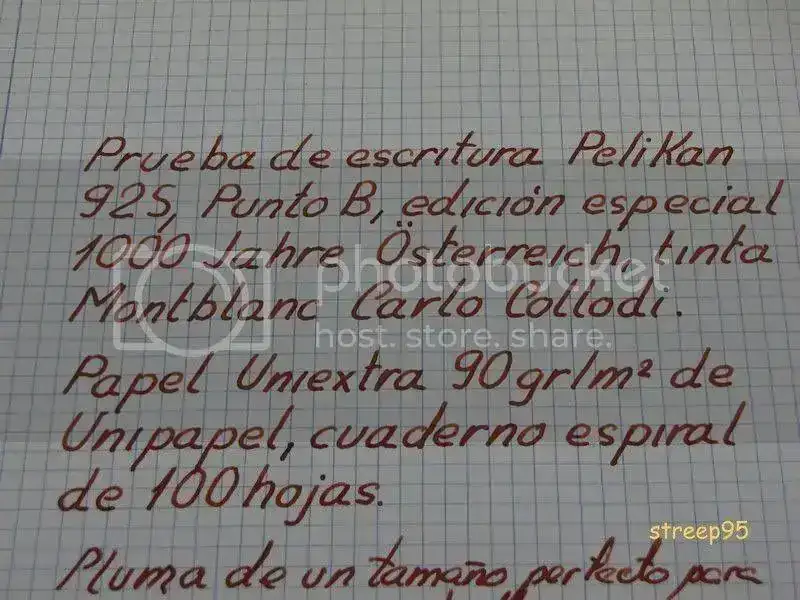 Prueba de escritura Pelikan
925, Punto B, edición especial
1000 Jahre Österreich, tinta
Montblanc Carlo Collodi.
Papel Uniextra 90gr/m² de
Unipapel, cuaderno espiral
de 100 hojas.
Pluma de un tamaño perfecto para
photobucket
host. store. share.
streep95